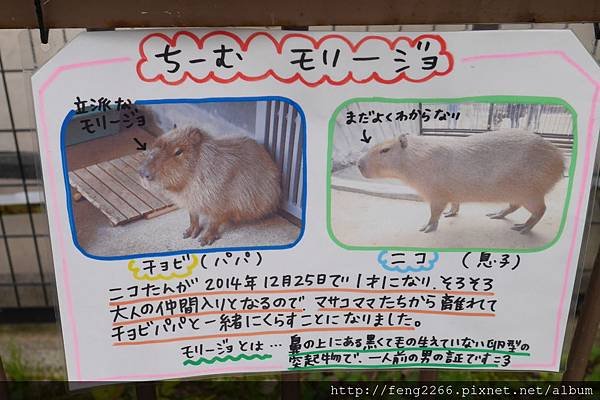 ちーむ モリージョ
立派な
モリージョ
まだよくわからない
チョビ(パパ)
ニコ (息子)
ニコたんが2014年12月25日で1才になり、そろそろ
大人の仲間入りとなるので、マサコママたちから離れて
チョビパパと一緒にくらすことになりました。
モリージョとは… 鼻の上にある黒くて毛の生えていない卵型の
突起物で、一人前の男の証です
http://feng2266.pixnet.net/album